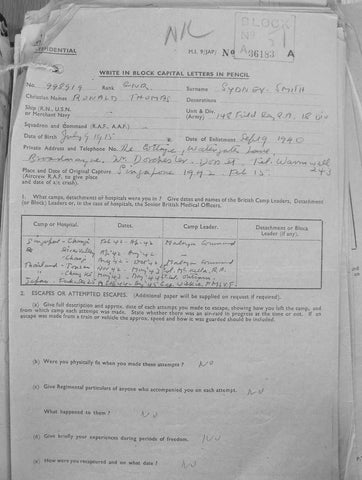 NK
BLOCK
N° 3
A
CONFIDENTIAL
M.I. 9/JAP/ No A 36183 A
WRITE IN BLOCK CAPITAL LETTERS IN PENCIL
No. 998919 Rank GNR Surname SYDNEY-SMITH
Christian Names RONALD THOMAS Decorations
Ship (R.N., U.S.N. or Merchant Navy Unit & Div. (Army) 148 Field Reg. R.A. 18 Div
Squadron and Command (R.A.F., A.A.F.)
Date of Birth July 9 1915 Date of Enlistment Sept 19 1940
Private Address and Telephone No. The Cottage, Watergate Lane,
Broadmayne, Nr. Dorchester - Dorset. Tel. Warmwell 243
Place and Date of Original Capture Singapore 1942 Feb 15
(Aircrew R.A.F. to give place and date of a/c crash).
1. What camps, detachments or hospitals were you in? Give dates and names of the British Camp Leaders, Detachment (or Block) Leaders, or in the case of hospitals, the Senior British Medical Officers.
Camp or Hospital. Dates. Camp Leader. Detachment or Block Leader (if any).
Singapore - Changi Feb 42 - Malaya Command
River Valley
Changi Malaya Command
Thailand - Nov 42 R.A.
Japan -
2. ESCAPES OR ATTEMPTED ESCAPES. (Additional paper will be supplied on request if required).
(a) Give full description and approx. date of each attempt you made to escape, showing how you left the camp, and from which camp each attempt was made. State whether there was an air-raid in progress at the time or not. If an escape was made from a train or vehicle the approx. speed and how it was guarded should be included.
(b) Were you physically fit when you made these attempts? NO
(c) Give Regimental particulars of anyone who accompanied you on each attempt. NO
What happened to them? NO
(d) Give briefly your experiences during periods of freedom. NO
(e) How were you recaptured and on what date? NO